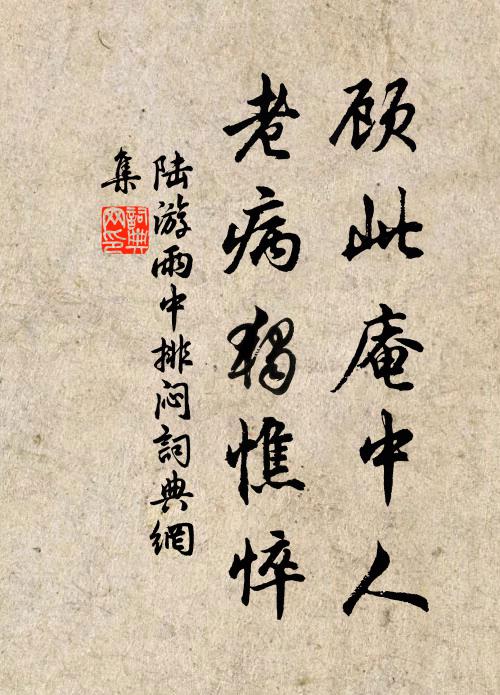 顾此庵中人
老病独憔悴
陆游雨中排闷詞典網
集
詞典
网印